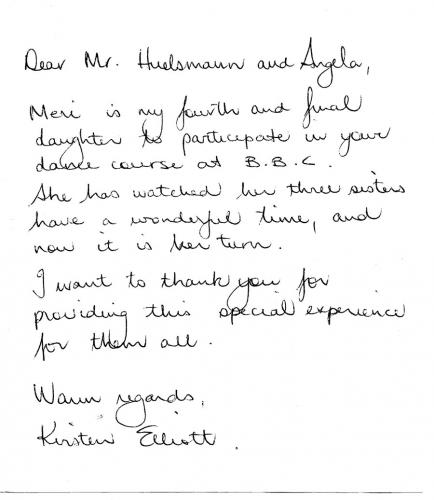 Dear Mr. Huelsmann and Angela,
Meri is my fourth and final
daughter to participate in your
dance course at B.B.C.
She has watched her three sisters
have a wonderful time, and
now it is her turn.
I want to thank you for
providing this special experience
for them all.
Warm regards,
Kirsten Elliott.